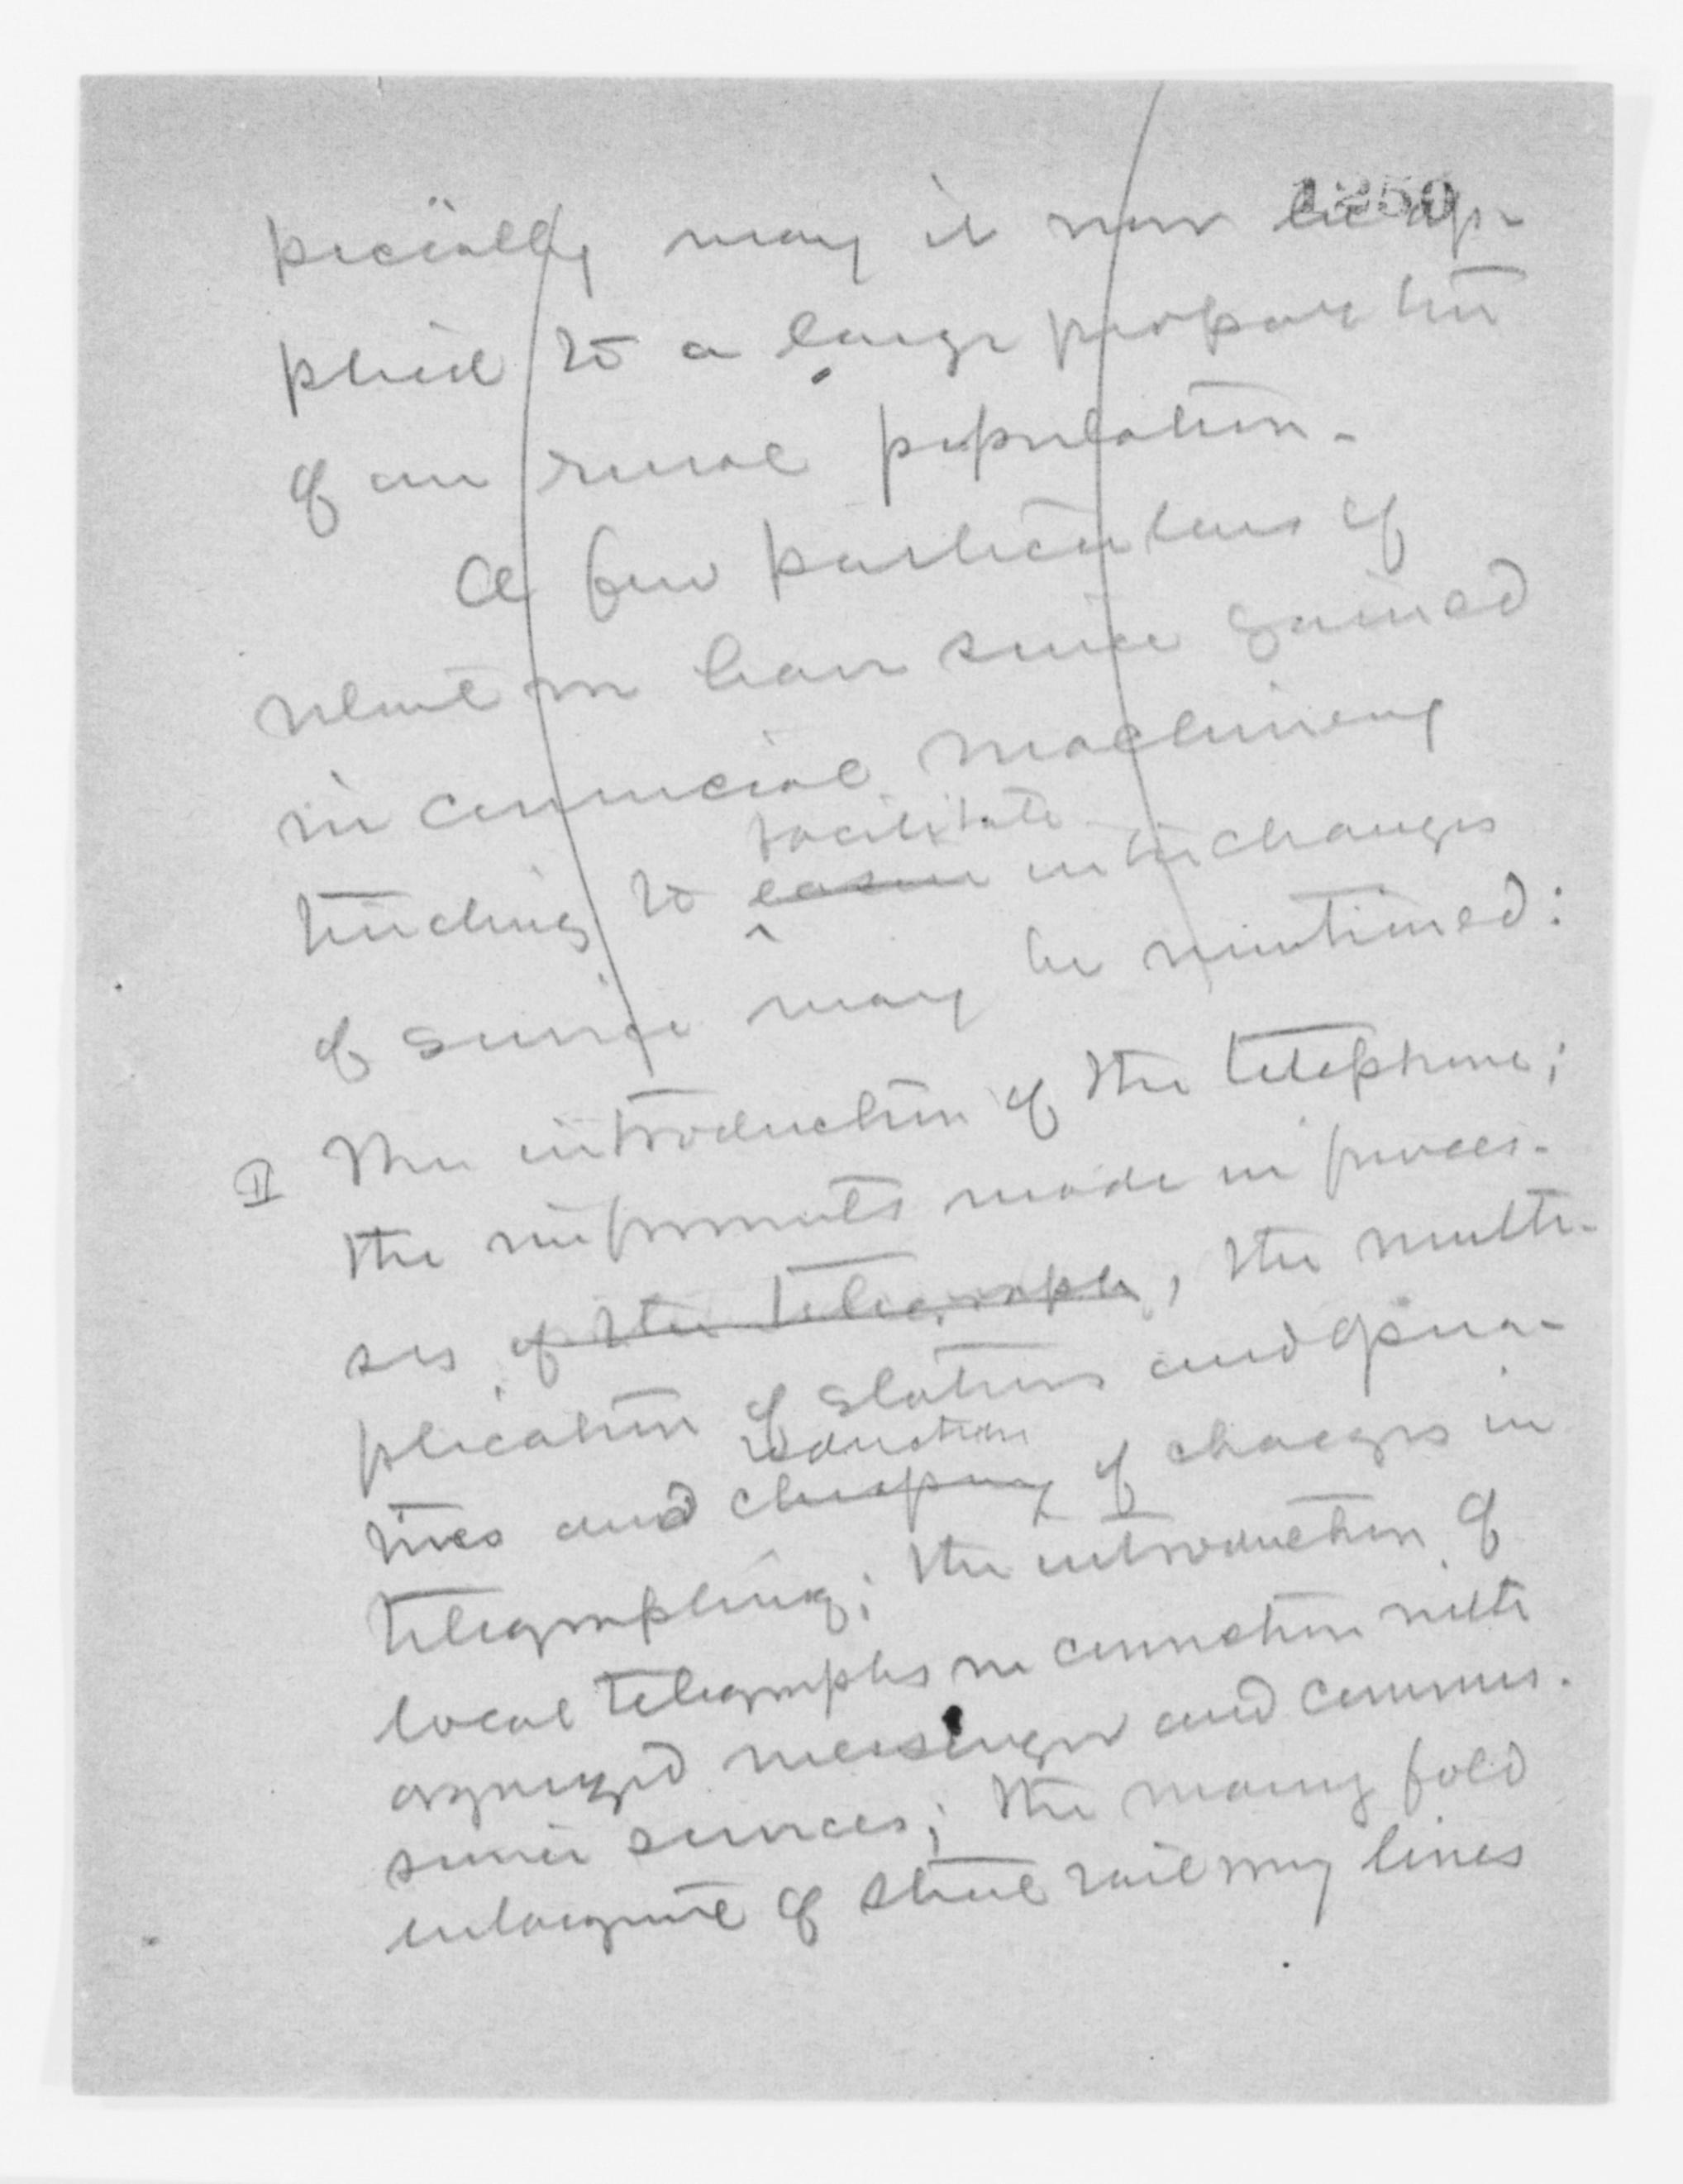 1250
pecially may it now be ap-
plied to a large proportion
of our rural population.
A few particulars of
what we have since gained
in commercial machinery
facilitate
tending to easier interchanges
of service may be mentioned:
II The introduction of the telephone;
the improvements made in proces-
ses of the telegraph, the multi-
plication of stations and opera-
reduction
tives and cheapening of charges in
telegraphing; the introduction of
local telegraphs in connection with
organized messenger and commis-
sioner services; the many fold
enlargement of street railway lines